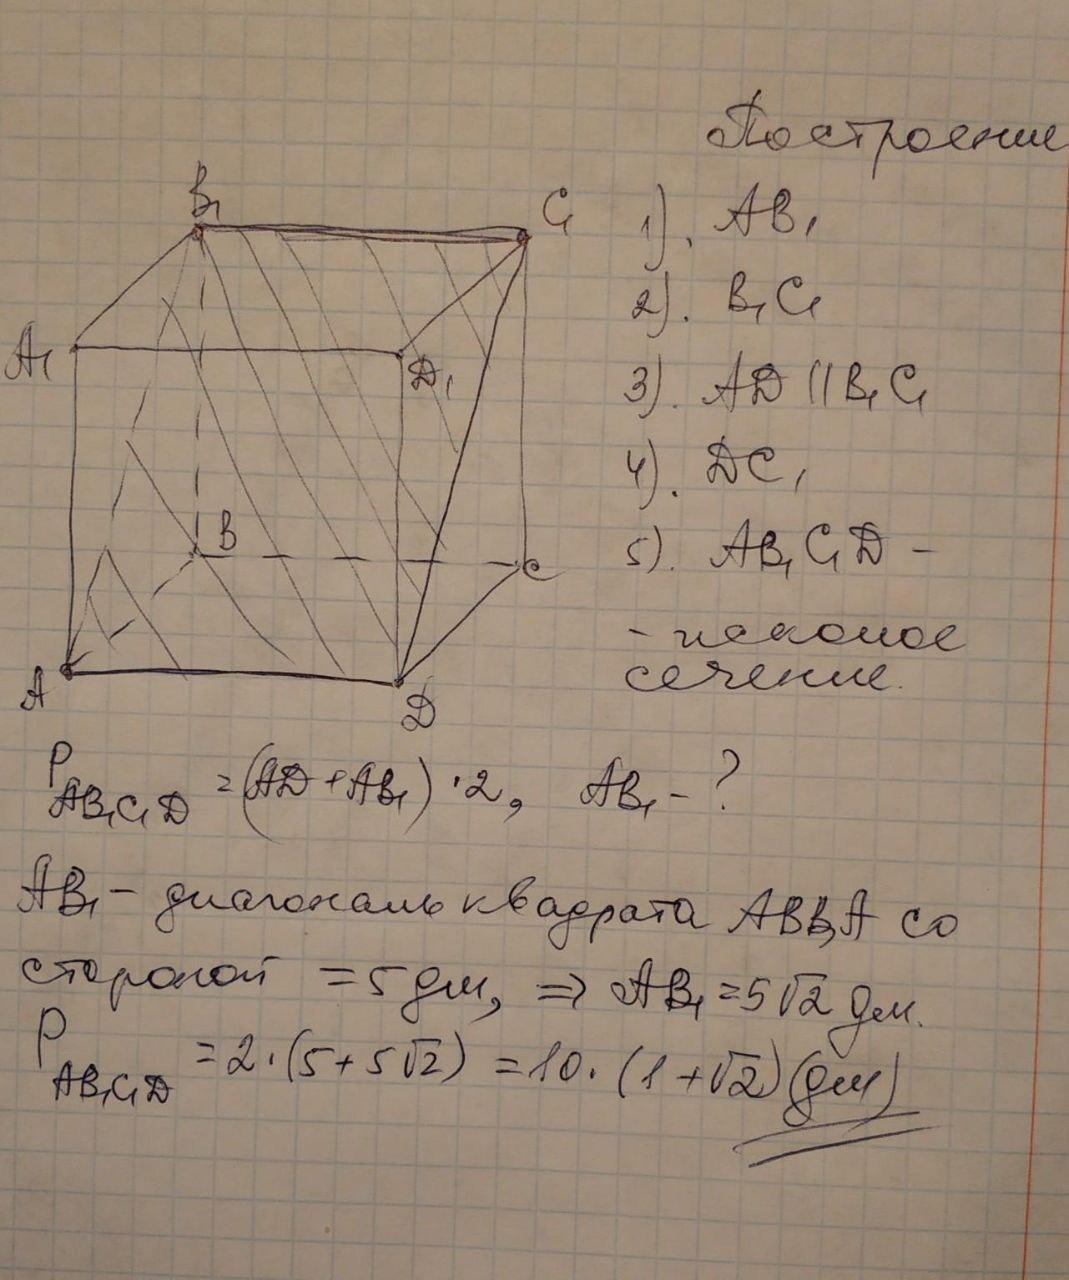 Построение
B₁
C₁
A₁
D₁
B
C
A
D
1). AB₁
2). B₁C₁
3). AD || B₁C₁
4). DC₁
5). AB₁C₁D –
- искомое
сечение.
P AB₁C₁D = (AD + AB₁) · 2, AB₁ - ?
AB₁ – диагональ квадрата ABB₁A со
стороной = 5 дм, ⇒ AB₁ = 5√2 дм.
P AB₁C₁D = 2 · (5 + 5√2) = 10 · (1 + √2) (дм)